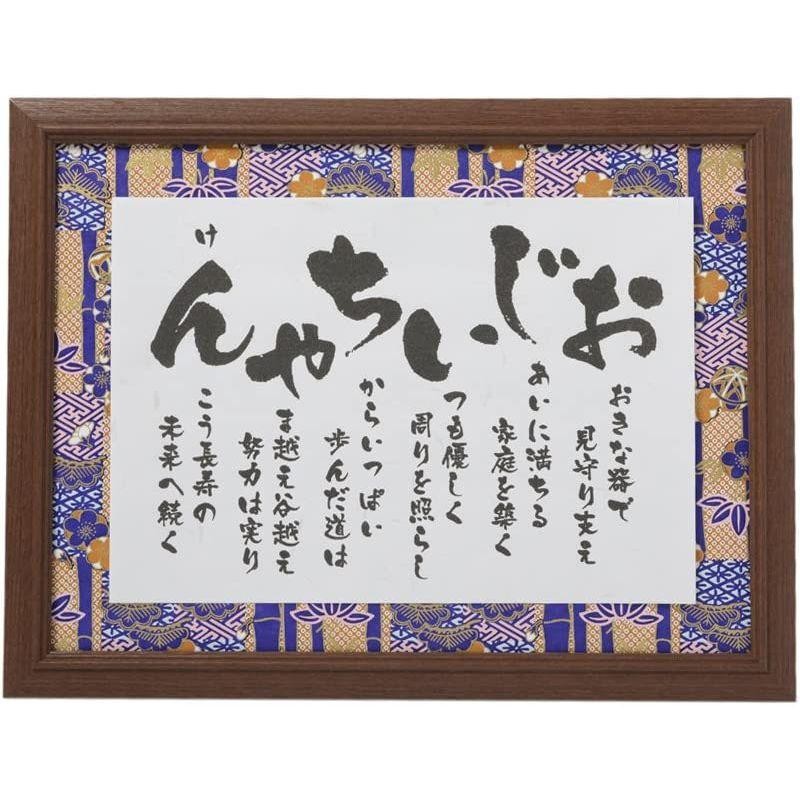 おじいちゃん
け
おきな器で
見守り支え
あいに満ちる
家庭を築く
つも優しく
周りを照らし
からいっぱい
歩んだ道は
ま越え谷越え
努力は実り
こう長寿の
未来へ続く